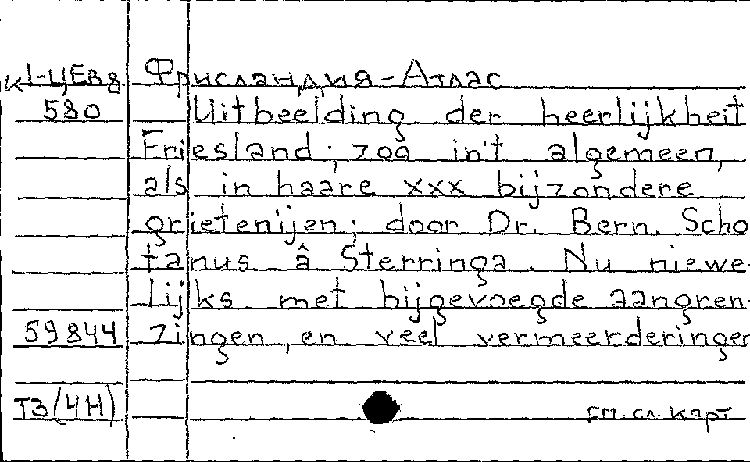 К1-ЦЕв8 Фрисландия-Атлас
580 Uitbeelding der heerlijkheit
Friesland; zoa in't algemeen,
als in haare xxx bijzondere
grietenijen; door Dr. Bern. Scho
tanus â Sterringa. Nu niewe-
lijks met bijgevoegde aangren-
59844 zingen, en veel vermeerderingen
ТЗ(4Н) см.сл.карт